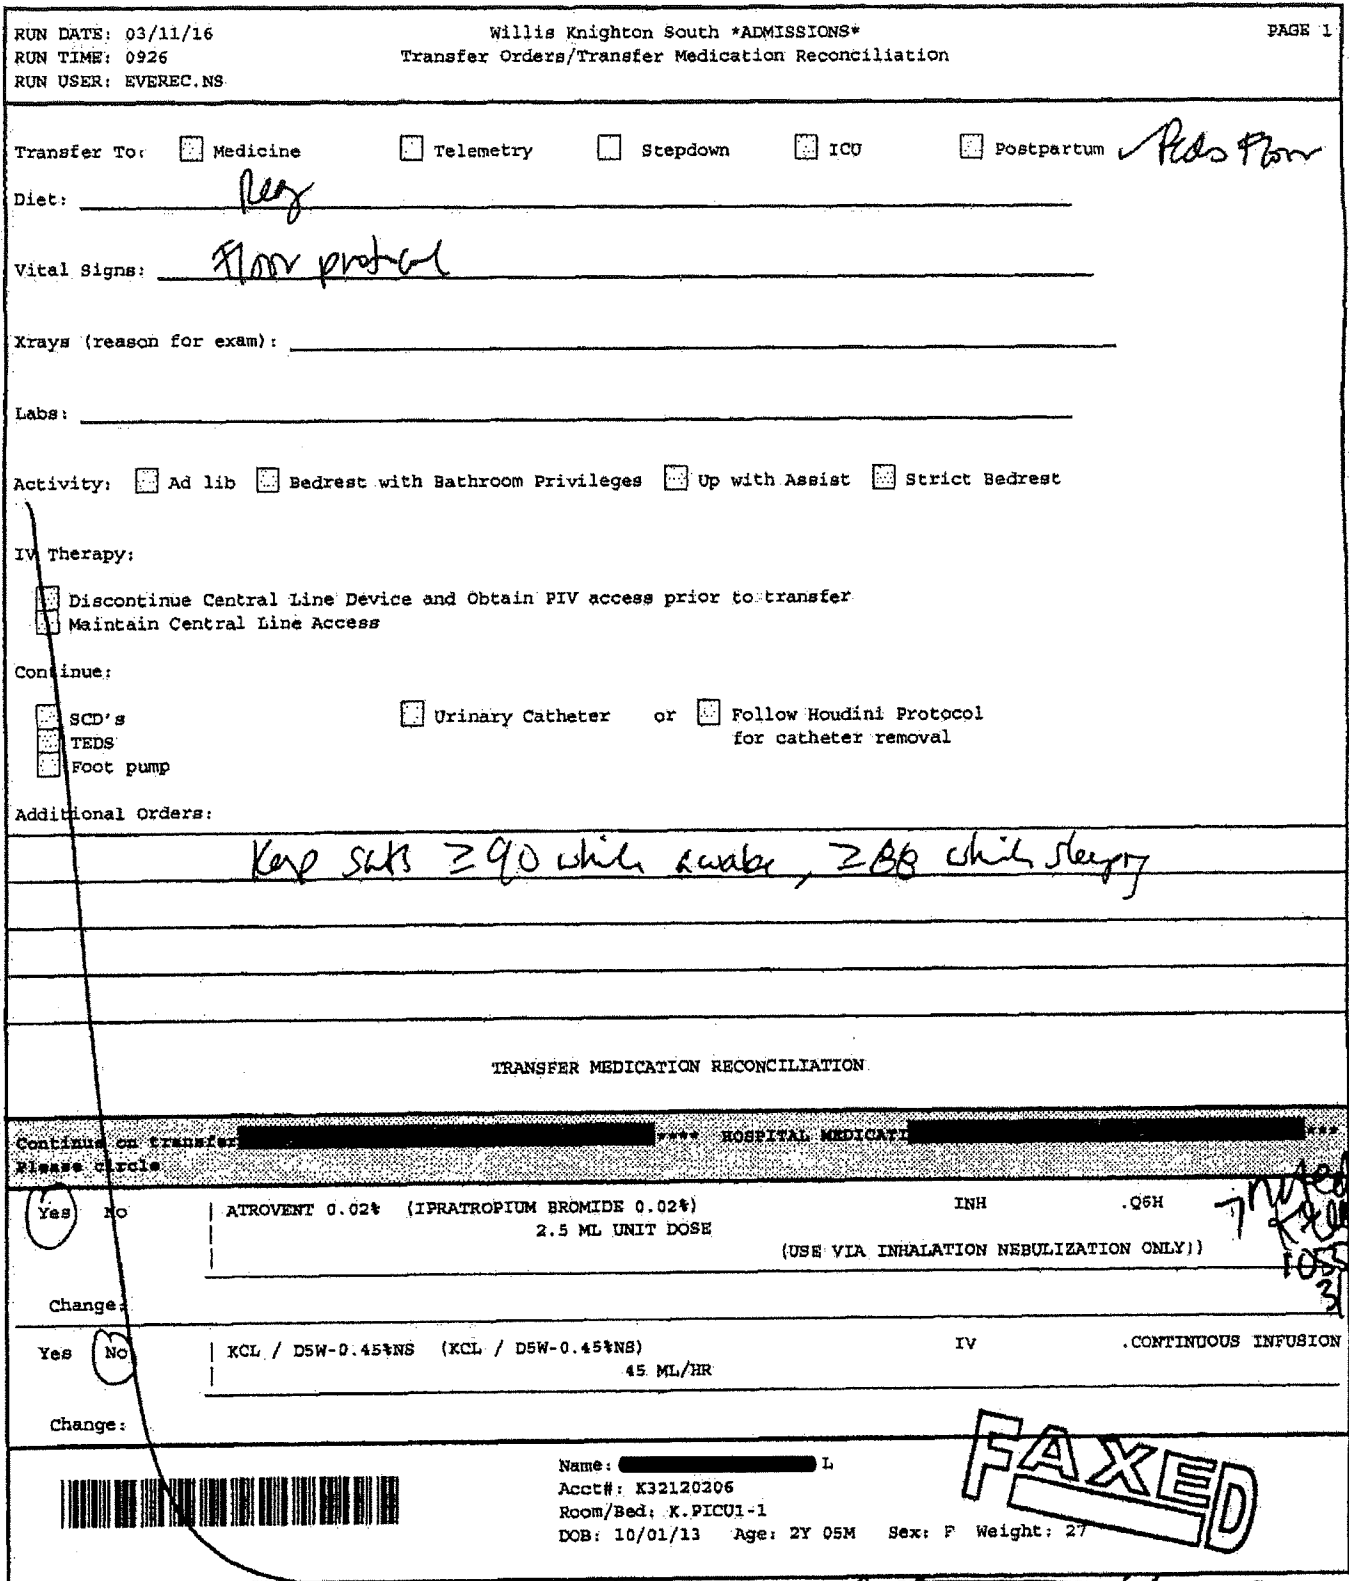 RUN DATE: 03/11/16 Willis Knighton South *ADMISSIONS* PAGE 1
RUN TIME: 0926 Transfer Orders/Transfer Medication Reconciliation
RUN USER: EVEREC.NS
Transfer To: Medicine Telemetry Stepdown ICU Postpartum Peds Floor
Diet: Reg
Vital Signs: Floor protocol
Xrays (reason for exam):
Labs:
Activity: Ad lib Bedrest with Bathroom Privileges Up with Assist Strict Bedrest
IV Therapy:
Discontinue Central Line Device and Obtain PIV access prior to transfer
Maintain Central Line Access
Continue:
SCD's Urinary Catheter or Follow Houdini Protocol
TEDS for catheter removal
Foot pump
Additional Orders:
Keep sats ≥90 while awake, ≥88 while sleeping
TRANSFER MEDICATION RECONCILIATION
Continue on transfer **** HOSPITAL MEDICATI ***
Please circle
Yes No ATROVENT 0.02% (IPRATROPIUM BROMIDE 0.02%) INH .Q6H noted
2.5 ML UNIT DOSE
(USE VIA INHALATION NEBULIZATION ONLY)) 1055
Change:
Yes No KCL / D5W-0.45%NS (KCL / D5W-0.45%NS) IV .CONTINUOUS INFUSION
45 ML/HR
Change:
FAXED
Name: L
Acct#: K32120206
Room/Bed: K.PICU1-1
DOB: 10/01/13 Age: 2Y 05M Sex: F Weight: 27